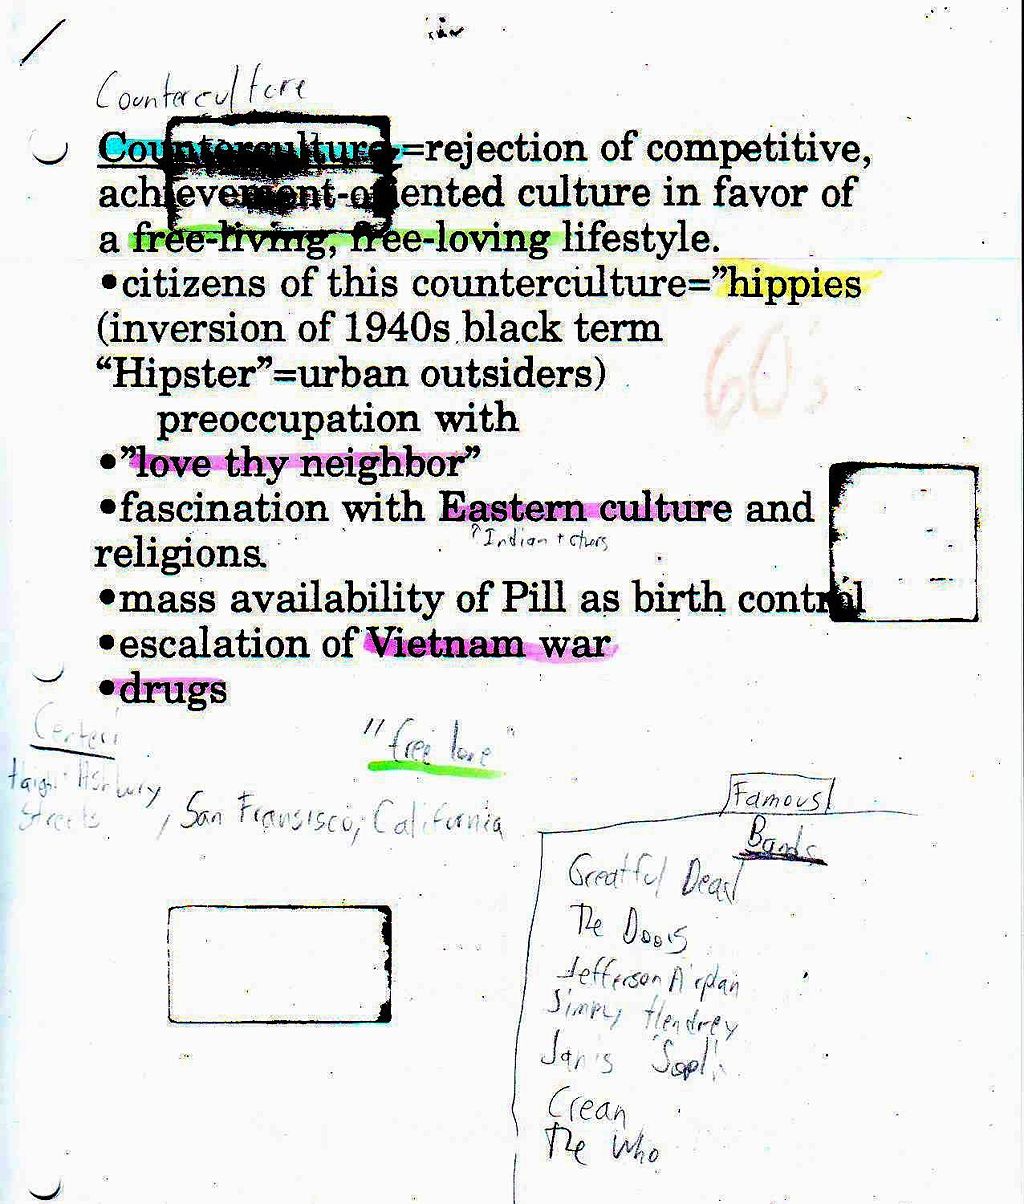 Counterculture
Counterculture=rejection of competitive,
achievement-oriented culture in favor of
a free-living, free-loving lifestyle.
•citizens of this counterculture=”hippies
(inversion of 1940s black term
“Hipster”=urban outsiders)
60's
preoccupation with
•”love thy neighbor”
•fascination with Eastern culture and
^Indian + others
religions.
•mass availability of Pill as birth control
•escalation of Vietnam war
•drugs
"free love"
Haight Ashbury
Streets, San Fransisco, California
Famous
Bands
Greatful Dead
The Doors
Jefferson Airplan
Jimmy Hendrey
Janis
Crean
The Who